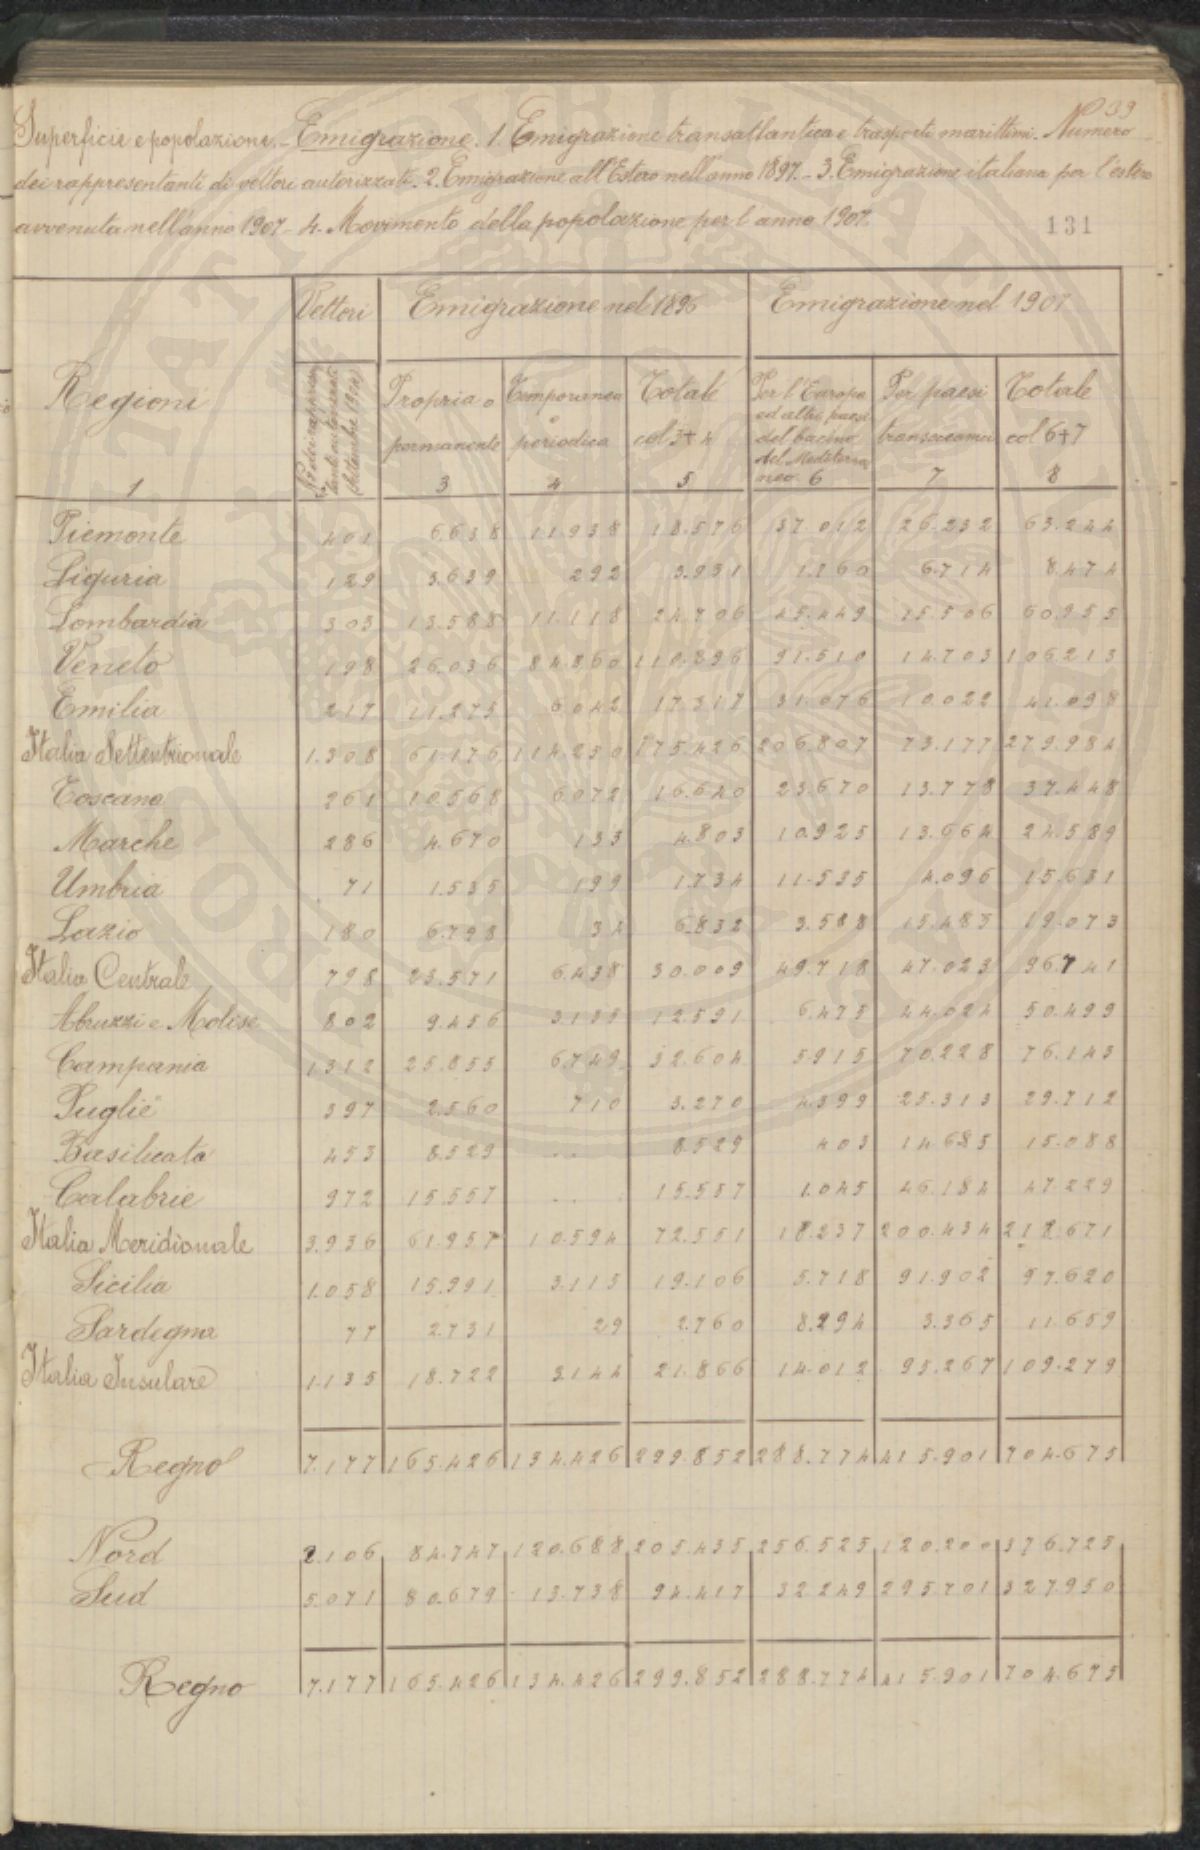 39
Superficie e popolazione. - Emigrazione. 1. Emigrazione transatlantica e trasporti marittimi. Numero
dei rappresentanti di vettori autorizzati. 2. Emigrazione all'Estero nell'anno 1897. - 3. Emigrazione italiana per l'estero
avvenuta nell'anno 1907 - 4. Movimento della popolazione per l'anno 1907.
131
Regioni
1
Vettori
Emigrazione nel 1896
Emigrazione nel 1907
Propria o
permanente
3
Temporanea
o
periodica
4
Totale
col 3+4
5
Per l'Europa
ed altri paesi
del bacino
del Mediterra
neo 6
Per paesi
transoceanici
7
Totale
col 6+7
8
Piemonte 461 6.638 11.938 18.576 37.012 26.232 63.244
Liguria 129 3.639 292 3.931 1.760 6.714 8.474
Lombardia 303 13.588 11.118 24.706 45.449 15.506 60.955
Veneto 198 26.036 84.860 110.896 91.510 14.703 106213
Emilia 217 11.275 6.042 17.317 31.076 10.022 41.098
Italia Settentrionale 1.308 61.176 114.250 175.426 206.807 73.177 279.984
Toscana 261 10.568 6.072 16.640 23.670 13.778 37.448
Marche 286 4.670 133 4.803 10.925 13.664 24.589
Umbria 71 1.535 199 1.734 11.535 4.096 15.631
Lazio 180 6.798 34 6.832 3.588 15.485 19.073
Italia Centrale 798 23.571 6.438 30.009 49.718 47.023 96.741
Abruzzi e Molise 802 9.456 3.135 12.591 6.475 44.024 50.499
Campania 1312 25.855 6.749 32.604 5.915 70.228 76.143
Puglie 397 2.560 710 3.270 4.399 25.313 29.712
Basilicata 453 8.529 .. 8.529 403 14.685 15.088
Calabrie 972 15.557 .. 15.557 1.045 46.184 47.229
Italia Meridionale 3.936 61.957 10.594 72.551 18.237 200.434 218.671
Sicilia 1.058 15.991 3.115 19.106 5.718 91.902 97.620
Sardegna 77 2.731 29 2.760 8.294 3.365 11.659
Italia Insulare 1.135 18.722 3.144 21.866 14.012 95.267 109.279
Regno 7.177 165.426 134.426 299.852 288.774 415.901 704.675
Nord 2.106 84.747 120.688 205.435 256.525 120.200 376.725
Sud 5.071 80.679 13.738 94.417 32.249 295.701 327.950
Regno 7.177 165.426 134.426 299.852 288.774 415.901 704.675